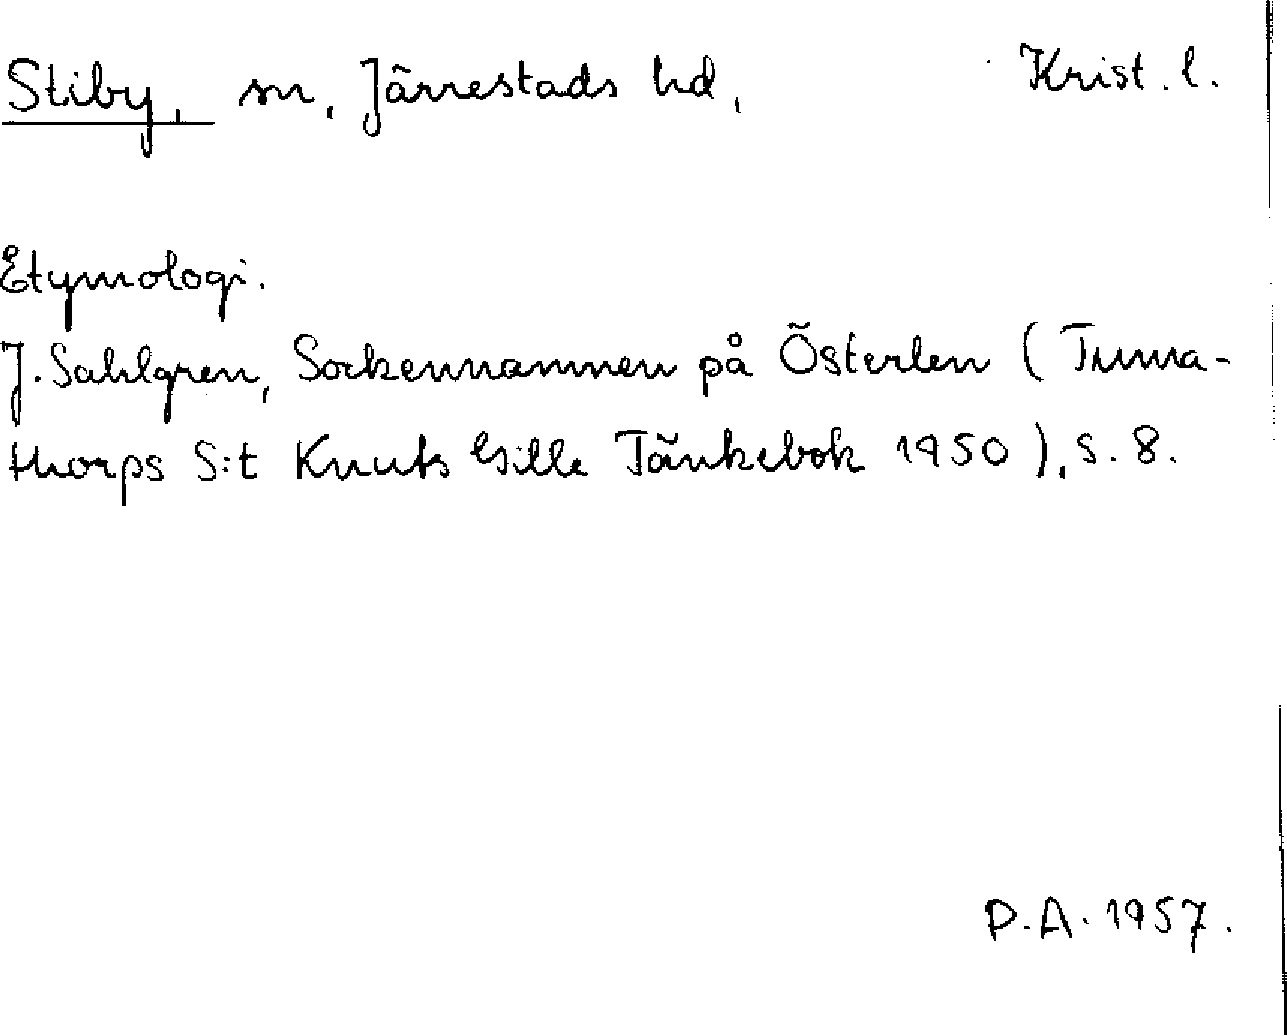 Stiby, sn, Järrestads hd, Krist. l.
Etymologi.
J. Sahlgren, Sockennamnen på Österlen (Tuma-
thorps S:t Knuts Gille Tänkebok 1950), s. 8.
P.A. 1957.